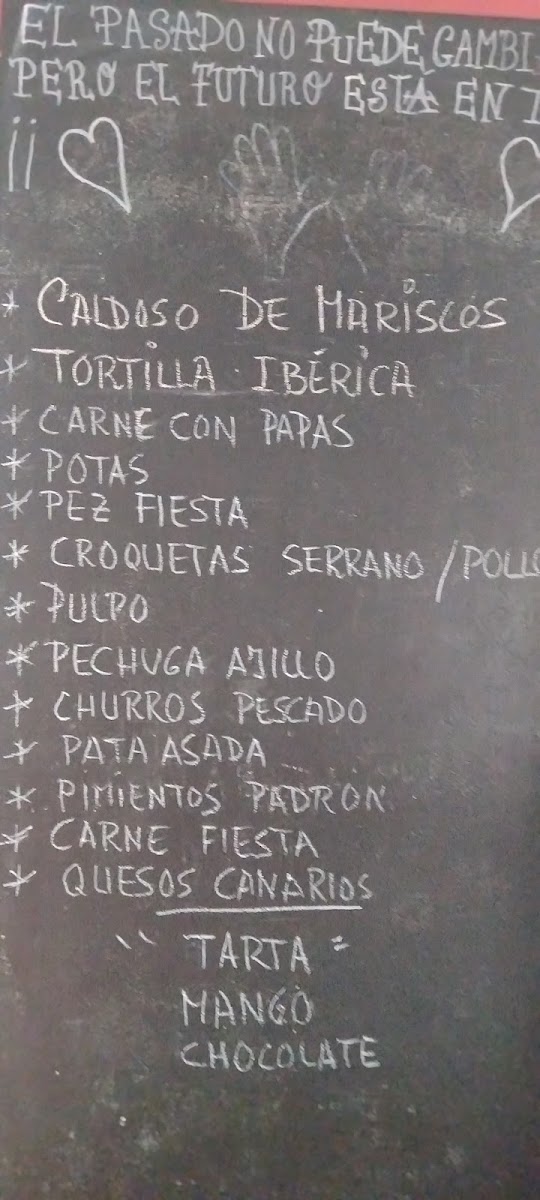 EL PASADO NO PUEDE GAMBI
PERO EL FUTURO ESTÁ EN T
¡¡
* CALDOSO DE MARISCOS
* TORTILLA IBÉRICA
* CARNE CON PAPAS
* POTAS
* PEZ FIESTA
* CROQUETAS SERRANO / POLLO
* PULPO
* PECHUGA AJILLO
* CHURROS PESCADO
* PATA ASADA
* PIMIENTOS PADRON
* CARNE FIESTA
* QUESOS CANARIOS
" TARTA "
MANGO
CHOCOLATE